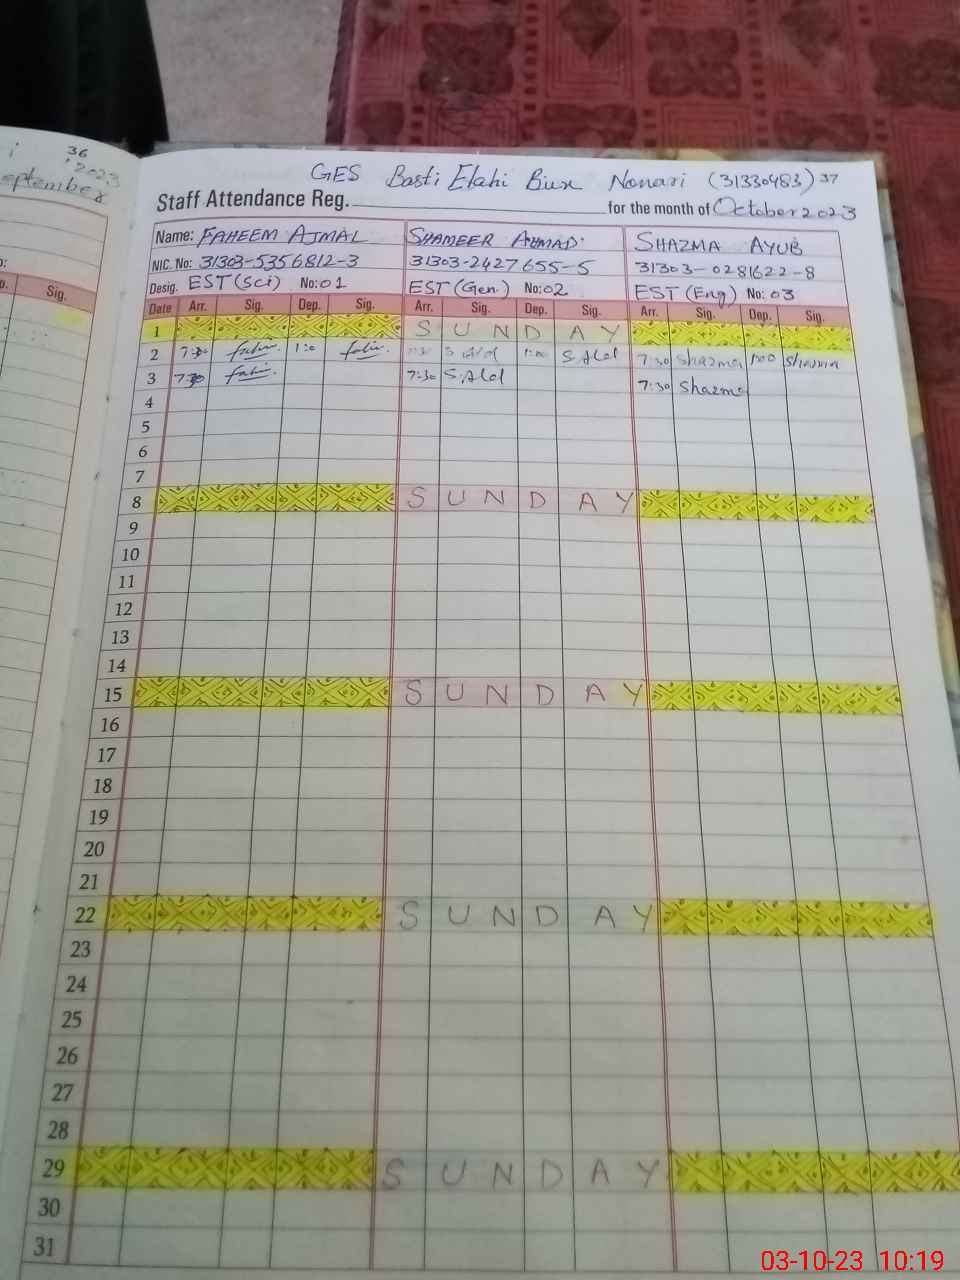 36
2023
eptember
Sig.
GES Basti Elahi Bux Nonari (31330483) 37
Staff Attendance Reg. for the month of October 2023
Name: FAHEEM AJMAL SHAMEER AHMAD SHAZMA AYUB
NIC. No: 31303-5356812-3 31303-2427655-5 31303-0281622-8
Desig. EST (Sci) No:01 EST (Gen) No:02 EST (Eng) No: 03
Date Arr. Sig. Dep. Sig. Arr. Sig. Dep. Sig. Arr. Sig. Dep. Sig.
1 SUNDAY
2 7:30 1:0 7:30 1:00 7:30 Shazma 1:00 Shazma
3 7:30 7:30 7:30 Shazma
4
5
6
7
8 SUNDAY
9
10
11
12
13
14
15 SUNDAY
16
17
18
19
20
21
22 SUNDAY
23
24
25
26
27
28
29 SUNDAY
30
31
03-10-23 10:19